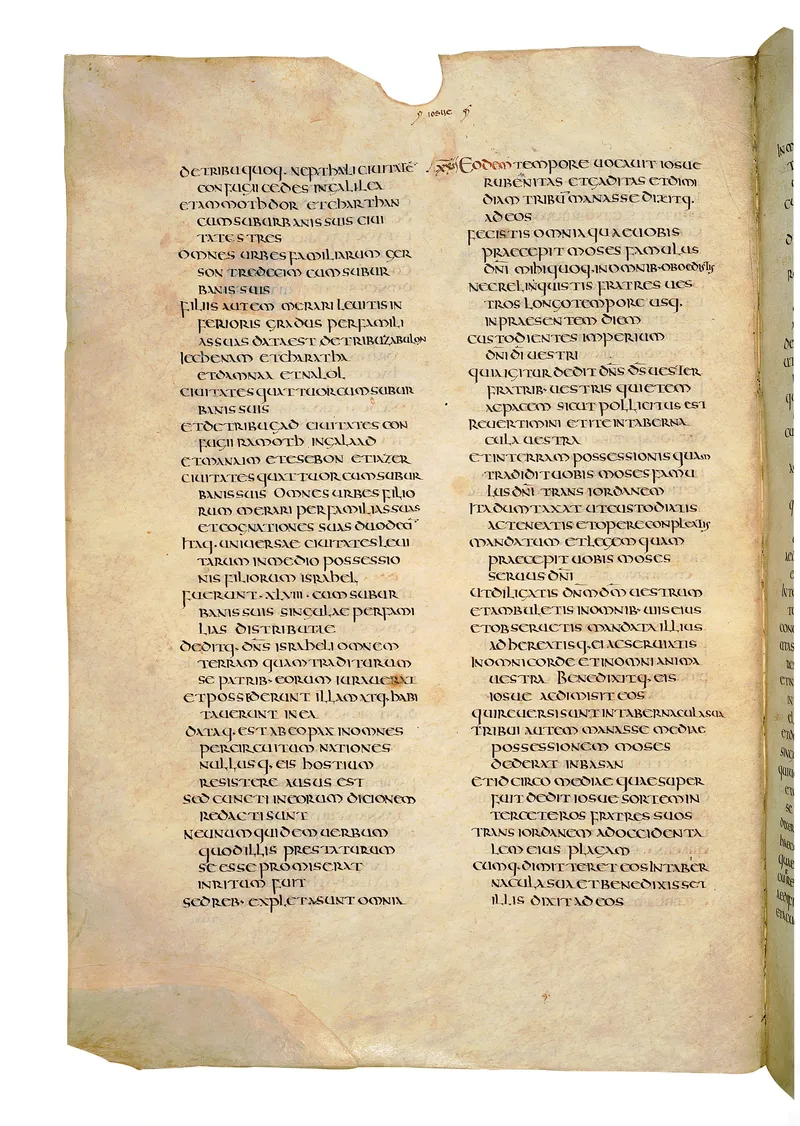 IOSUE
DETRIBU QUOQ· NEPTHALI CIUITATĒ
CONFUGII CEDES INGALILEA
ETAMMOTHDOR ETCHARTHAN
CUMSUBURBANIS SUIS CIUI
TATES TRES
OMNES URBES FAMILIARUM GER
SON TREDECIM CUMSUBUR
BANIS SUIS
FILIIS AUTEM MERARI LEUITIS IN
FERIORIS GRADUS PERFAMILI
AS SUAS DATAEST DETRIBUZABULON
IECHENAM ETCHARATHA
ETDAMNAA ETNALOL
CIUITATES QUATTUOR CUMSUBUR
BANIS SUIS
ETDETRIBUGAD CIUITATES CON
FUGII RAMOTH INGALAAD
ETMANAIM ETESEBON ETIAZER
CIUITATES QUATTUOR CUMSUBUR
BANIS SUIS OMNES URBES FILIO
RUM MERARI PERFAMILIAS SUAS
ETCOGNATIONES SUAS DUODECĪ
ITAQ· UNIUERSAE CIUITATES LEUI
TARUM INMEDIO POSSESSIO
NIS FILIORUM ISRAHEL
FUERUNT·XLVIII· CUMSUBUR
BANIS SUIS SINGULAE PERFAMI
LIAS DISTRIBUTAE
DEDITQ· DN̄S ISRAHELI OMNEM
TERRAM QUAMTRADITURUM
SE PATRIB· EORUM IURAUERAT
ETPOSSIDERUNT ILLAM ATQ· HABI
TAUERUNT INEA
DATAQ· EST ABEOPAX INOMNES
PERCIRCUITUM NATIONES
NULLUSQ· EIS HOSTIUM
RESISTERE AUSUS EST
SED CUNCTI INEORUM DICIONEM
REDACTI SUNT
NEUNUM QUIDEM UERBUM
QUOD ILLIS PRESTATURUM
SE ESSE PROMISERAT
INRITUM FUIT
SED REB· EXPLETASUNT OMNIA
EODEM TEMPORE UOCAUIT IOSUE
RUBENITAS ETGADITAS ETDIMI
DIAM TRIBUM MANASSE DIXITQ·
AD EOS
FECISTIS OMNIA QUAEUOBIS
PRAECEPIT MOSES FAMULUS
DN̄I MIHIQUOQ·INOMNIB·OBOEDISTIS
NECRELINQUISTIS FRATRES UES
TROS LONGOTEMPORE USQ·
INPRAESENTEM DIEM
CUSTODIENTES IMPERIUM
DN̄I DĪ UESTRI
QUIAIGITUR DEDIT DN̄S D̄S UESTER
FRATRIB· UESTRIS QUIETEM
AEPACEM SICUT POLLICITUS EST
REUERTIMINI ETITE INTABERNA
CULA UESTRA
ETINTERRAM POSSESSIONIS QUAM
TRADIDIT UOBIS MOSES FAMU
LUS DN̄I TRANS IORDANEM
ITADUMTAXAT UTCUSTODIATIS
ACTENEATIS ETOPERECONPLEATIS
MANDATUM ETLEGEM QUAM
PRAECEPIT UOBIS MOSES
SERUUS DN̄I
UTDILIGATIS DN̄M D̄M UESTRUM
ETAMBULETIS INOMNIB· UIIS EIUS
ETOBSERUETIS MANDATA ILLIUS
ADHEREATISQ· EI AESERUIATIS
INOMNICORDE ETINOMNI ANIMA
UESTRA BENEDIXITQ· EIS
IOSUE AEDIMISIT EOS
QUIREUERSI SUNT INTABERNACULA SUA
TRIBUI AUTEM MANASSE MEDIAE
POSSESSIONEM MOSES
DEDERAT INBASAN
ETIDCIRCO MEDIAE QUAE SUPER
FUIT DEDIT IOSUE SORTEM IN
TERCETEROS FRATRES SUOS
TRANS IORDANEM ADOCCIDENTA
LEM EIUS PLAGAM
CUMQ·DIMITTERET EOS INTABER
NACULA SUA ET BENEDIXISSET
ILLIS DIXIT AD EOS